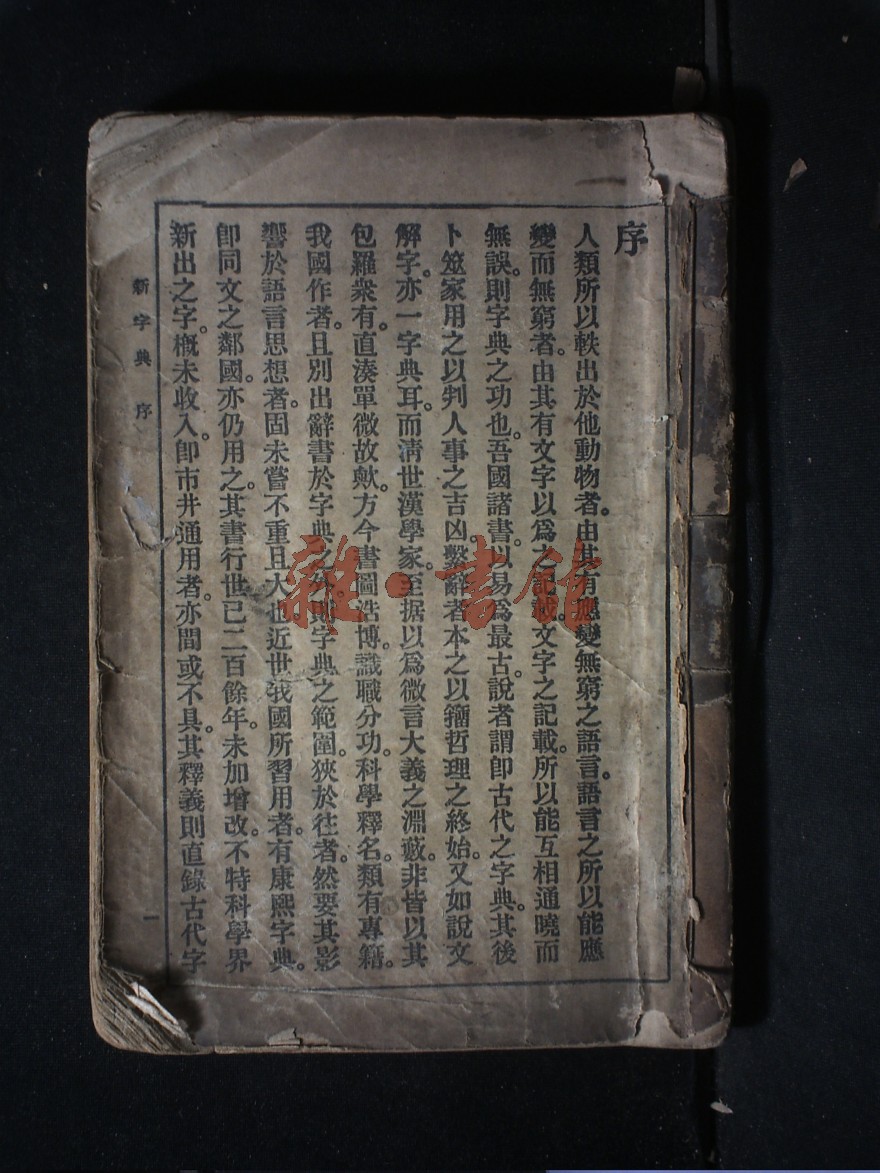 序
人類所以軼出於他動物者。由其有應變無窮之語言。語言之所以能應
變而無窮者。由其有文字以爲之記載。文字之記載。所以能互相通曉而
無誤。則字典之功也。吾國諸書。以易爲最古。說者謂卽古代之字典。其後
卜筮家用之以判人事之吉凶。繫辭者本之以籀哲理之終始。又如說文
解字。亦一字典耳。而淸世漢學家。至据以爲微言大義之淵藪。非皆以其
包羅衆有。直湊單微故歟。方今書圖浩博。識職分功。科學釋名。類有專籍。
我國作者。且別出辭書於字典之外。則字典之範圍。狹於往者。然要其影
響於語言思想者。固未嘗不重且大也。近世我國所習用者。有康熙字典。
卽同文之鄰國。亦仍用之。其書行世已二百餘年。未加增改。不特科學界
新出之字。槪未收入。卽市井通用者。亦間或不具。其釋義則直錄古代字
新字典 序
一
雜·書館